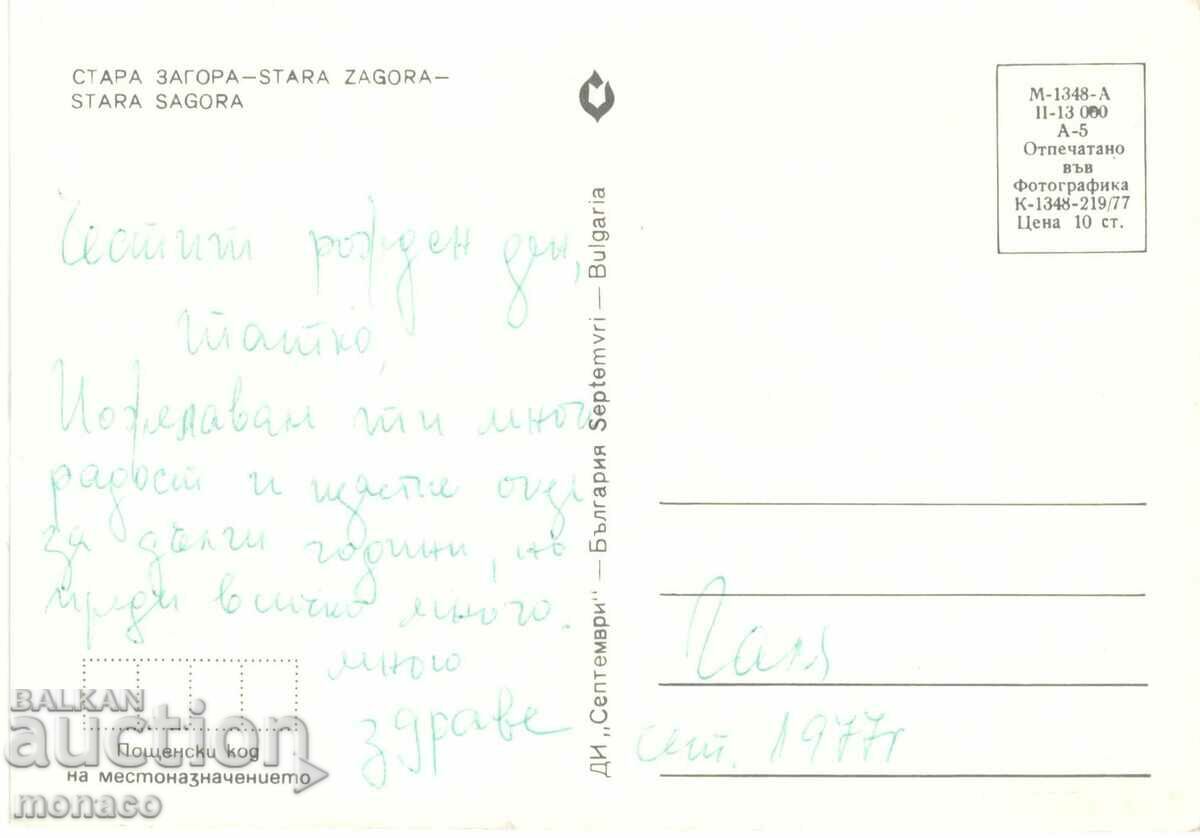 СТАРА ЗАГОРА—STARA ZAGORA—
STARA SAGORA
М-1348-А
II-13 000
А-5
Отпечатано
във
Фотографика
К-1348-219/77
Цена 10 ст.
Честит рожден ден,
татко,
Пожелавам ти много
радост и щастие още
за дълги години, но
преди всичко много.
много
здраве
ДИ „Септември" — България Septemvri — Bulgaria
Галя
септ. 1977г
Пощенски код
на местоназначението
BALKAN
auction
monaco